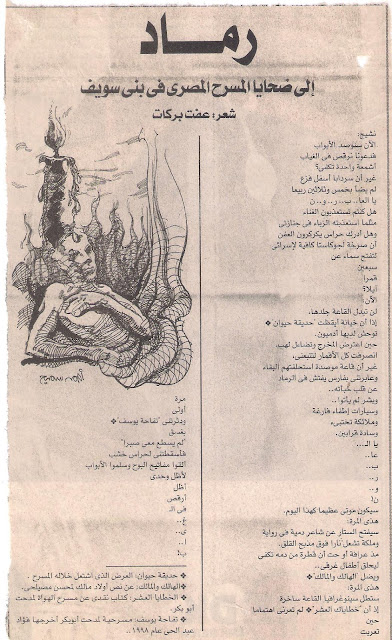 رماد
إلى ضحايا المسرح المصرى فى بنى سويف
شعر: عفت بركات
نشيج:
الآن ستوصد الأبواب
فدعونا نرقص فى الغياب
أشمعة واحدة تكفى؟
غير أن سردابا أسفل فزع
لم يضأ بخمس وثلاثين ربيعا
يا العا.. ب.. ر.. و.. ن
هل كنتم تستعذبون الغناء
مثلما استعذبته الرياء فى جنازتى
وهل أدرك حراس يكركرون العفن
أن صرخة لجوكاستا كافية لإسرائى
لتفتح سماء عن
سبعين
قمرا
أيلا؟
الآن
لن تبدل القاعة جلدها،
إذا أن خيانة أيقظت "حديقة حيوان" ❖
توحش لديها آدميون.
حين اعترض المخرج وتضاءل لهب
انصرفت كل الأقمار لتنعى،
غير أن قاعة موصدة استعجلتهم البقاء
وعابرتنى بفارس يفتش فى الرماد
عن قلب خبأته..
وبشر لم يأتوا..
وسيارات إطفاء فارغة
وملائكة تختبىء
وسادة قرابين..
يا الـ...
عا..
ب..
ر..
و..
ن!
سيكون موتى عظيما كهذا اليوم.
هذى المرة:
سيفتح الستار عن شاعر دمية فى رواية
وملكة تشعل نارا فوق مذبح القلق،
مذ عرافة أوحت أن قطرة من دمه تكفى
ليحلق أطفال غرقى..
ويضل "الهالك والمالك" ❖
هذى المرة:
ستظل سينوغرافيا القاعة ساخرة
إذ أن "خطاياك العشر" ❖ لم تعرنى اهتماما
حين
تعريت
مرة
أولى
ودثرتنى "تفاحة يوسف" ❖
بغسق
"لم يسطع معى صبرا"
فأسقطتنى لحراس خشب
ألقوا مفاتيح البوح وسلموا الأبواب
لأظل وحدى
أظل
أرقص
فى الـ
غ..
ى..
ا..
ب!
❖ حديقة حيوان: العرض الذى اشتعل خلاله المسرح.
❖ الهالك والمالك: عن نص أولاد مالك لمحسن مصيلحى.
❖ الخطايا العشر: كتاب نقدى عن مسرح الهواة لمدحت أبو بكر.
❖ تفاحة يوسف: مسرحية لمدحت أبوبكر أخرجها فؤاد
عبد الحى عام ١٩٩٨..